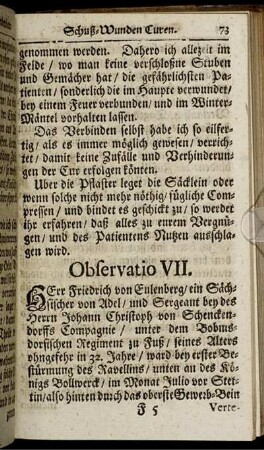 Schuß-Wunden Curen. 73
genommen werden. Dahero ich allezeit im
Felde / wo man keine verschloßne Stuben
und Gemächer hat / die gefährlichsten Pa-
tienten / sonderlich die im Haupte verwundet /
bey einem Feuer verbunden / und im Winter
Mäntel vorhalten lassen.
Das Verbinden selbst habe ich so eilfer-
tig / als es immer möglich gewesen / verrich-
tet / damit keine Zufälle und Verhinderun-
gen der Cur erfolgen könten.
Uber die Pflaster leget die Säcklein oder
wenn solche nicht mehr nöthig / fügliche Com-
pressen / und bindet es geschickt zu / so werdet
ihr erfahren / daß alles zu eurem Vergnü-
gen / und des Patientens Nutzen ausschla-
gen wird.
Observatio VII.
HErr Friedrich von Eulenberg / ein Säch-
sischer von Adel / und Sergeant bey des
Herrn Johann Christoph von Schencken-
dorffs Compagnie / unter dem Bobens-
dorfischen Regiment zu Fuß / seines Alters
ohngefehr in 32. Jahre / ward bey erster Be-
stürmung des Ravellins / unten an des Kö-
nigs Vollwerck / im Monat Julio vor Stet-
tin / also hinten durch das oberste Gewerb-Bein
F 5 Verte-